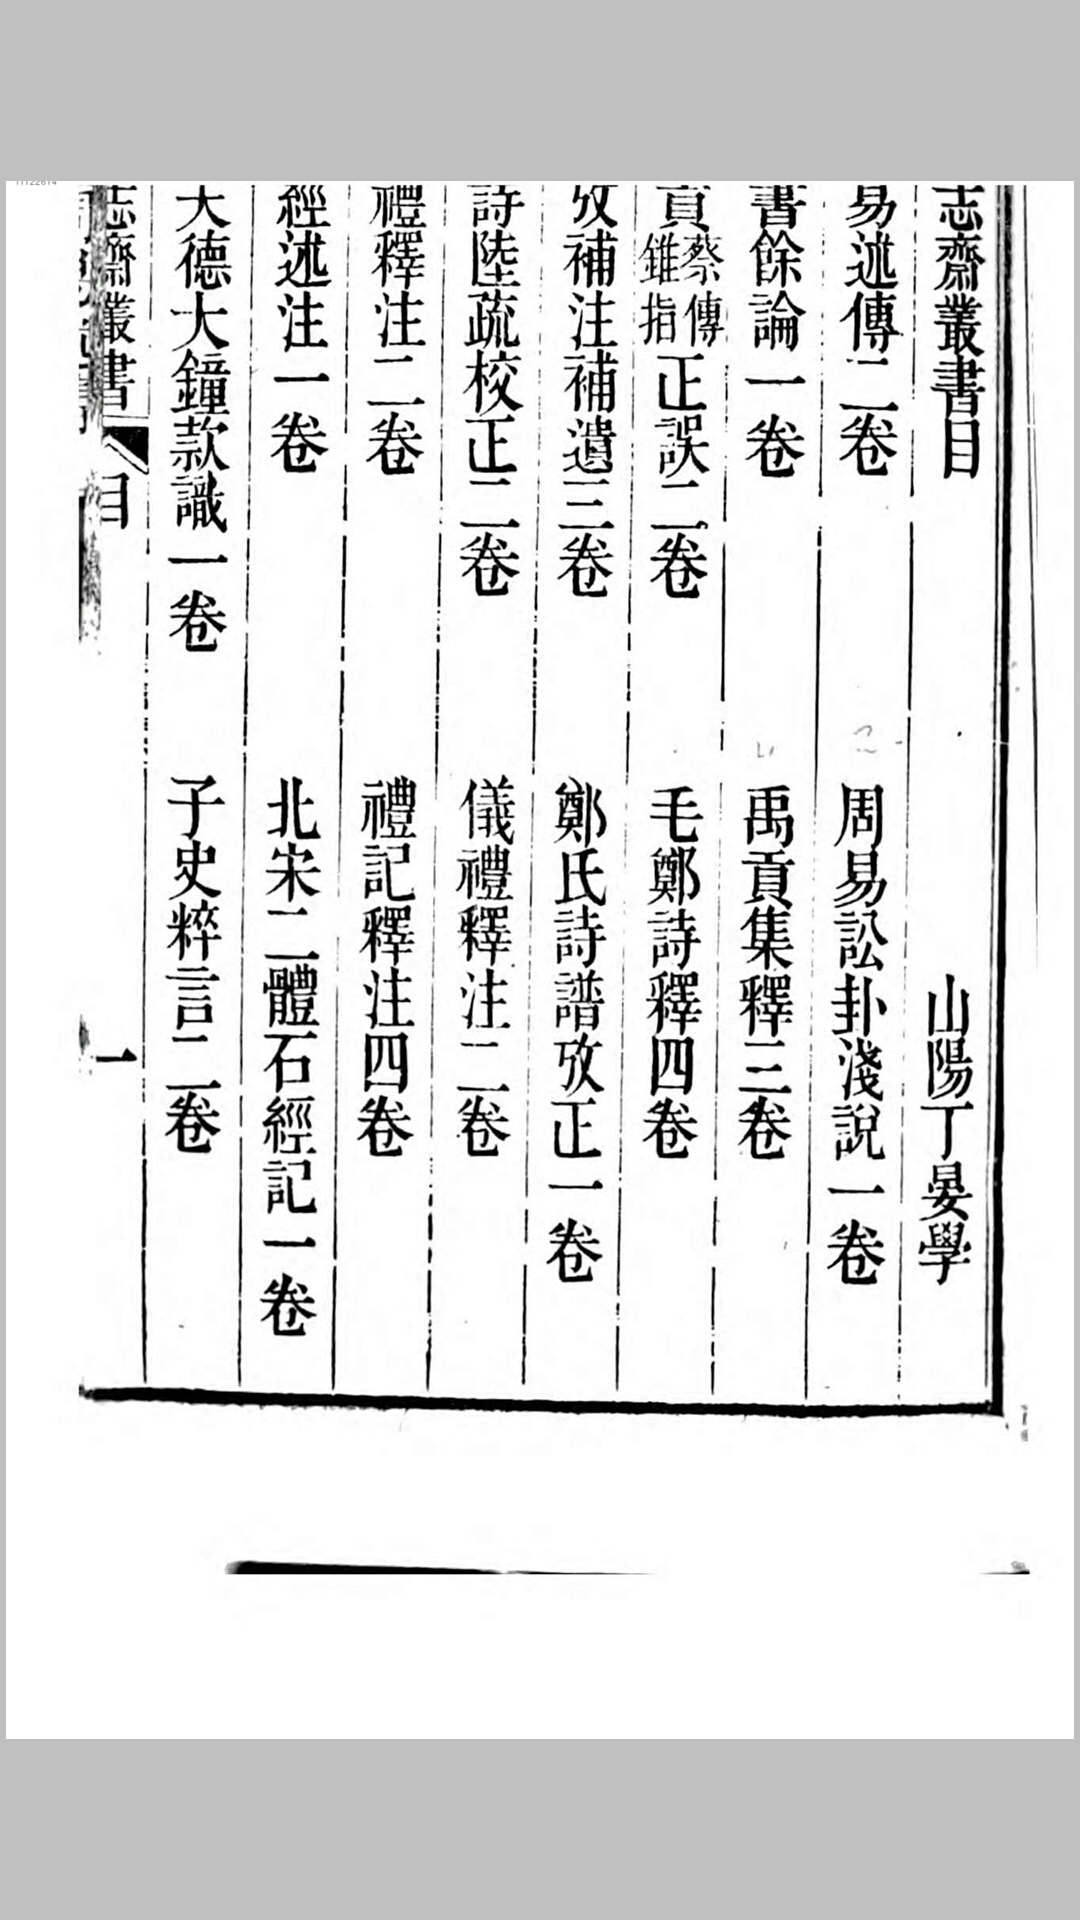 志齋叢書目
山陽丁晏學
易述傳二卷
周易訟卦淺說一卷
書餘論一卷
禹貢集釋三卷
貢蔡傳錐指正誤二卷
毛鄭詩釋四卷
攷補注補遺三卷
鄭氏詩譜攷正一卷
詩陸疏校正二卷
儀禮釋注二卷
禮釋注二卷
禮記釋注四卷
經述注一卷
北宋二體石經記一卷
大德大鐘款識一卷
子史粹言二卷
志齋叢書
目
一